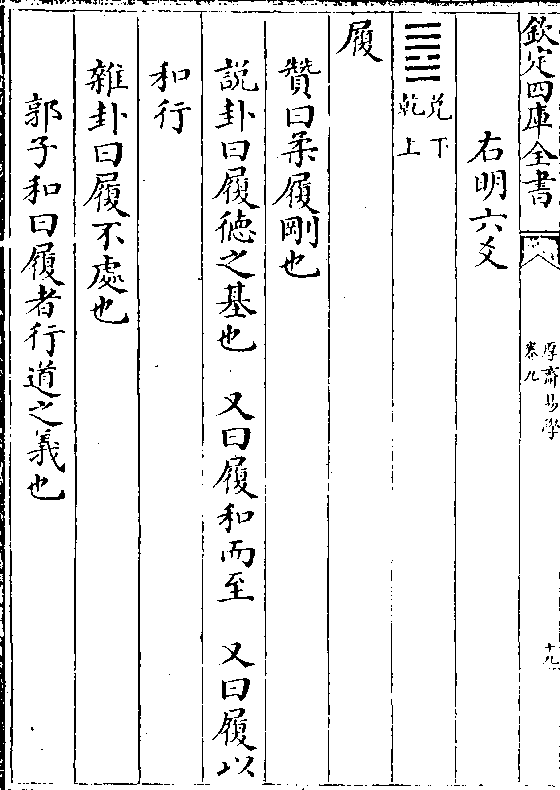 欽定四庫全書
厚齋易學
卷九
十九
右明六爻
䷉兌下
乾上
履
贊曰柔履剛也
説卦曰履徳之基也　又曰履和而至　又曰履以
和行
雜卦曰履不處也
郭子和曰履者行道之義也